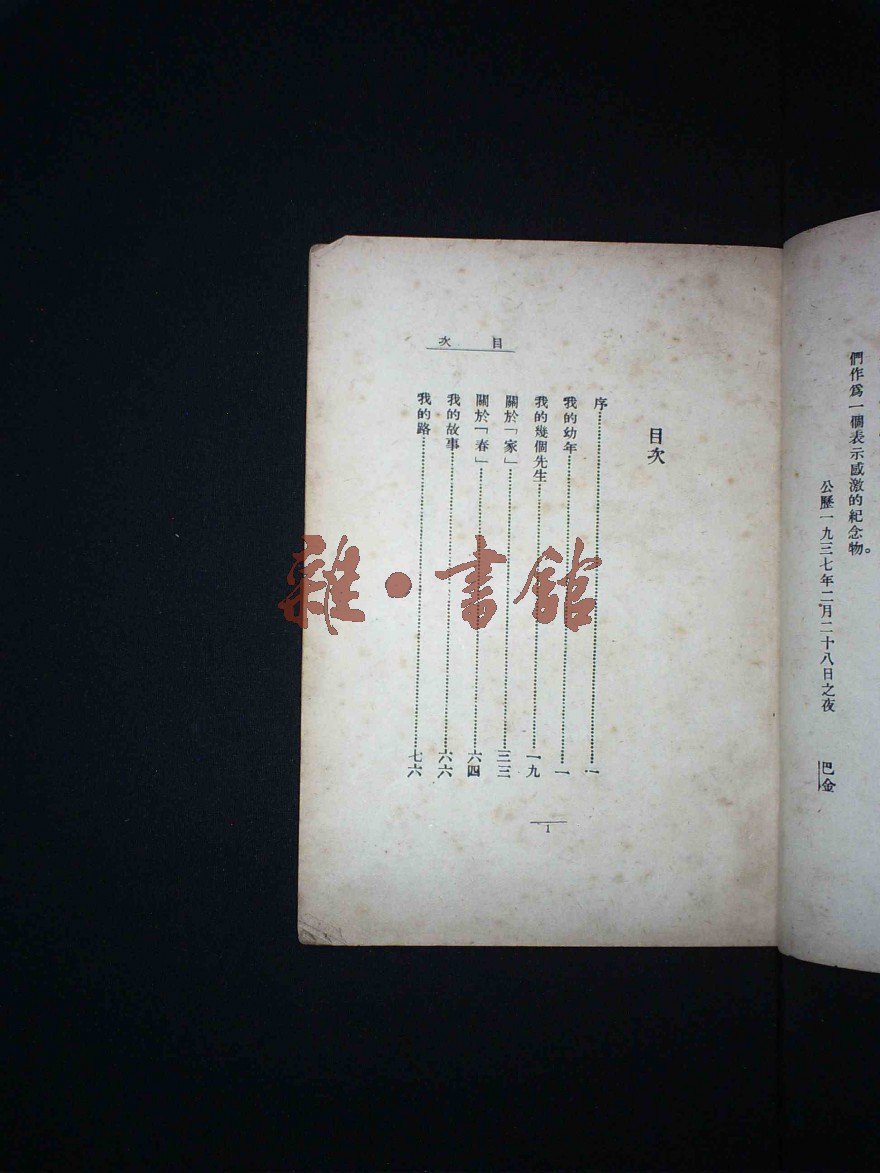 們作爲一個表示感激的紀念物。
公歷一九三七年二月二十八日之夜
巴金
目次
目次
序一
我的幼年一
我的幾個先生一九
關於「家」三三
關於「春」六四
我的故事六六
我的路七六
1
雜·書館